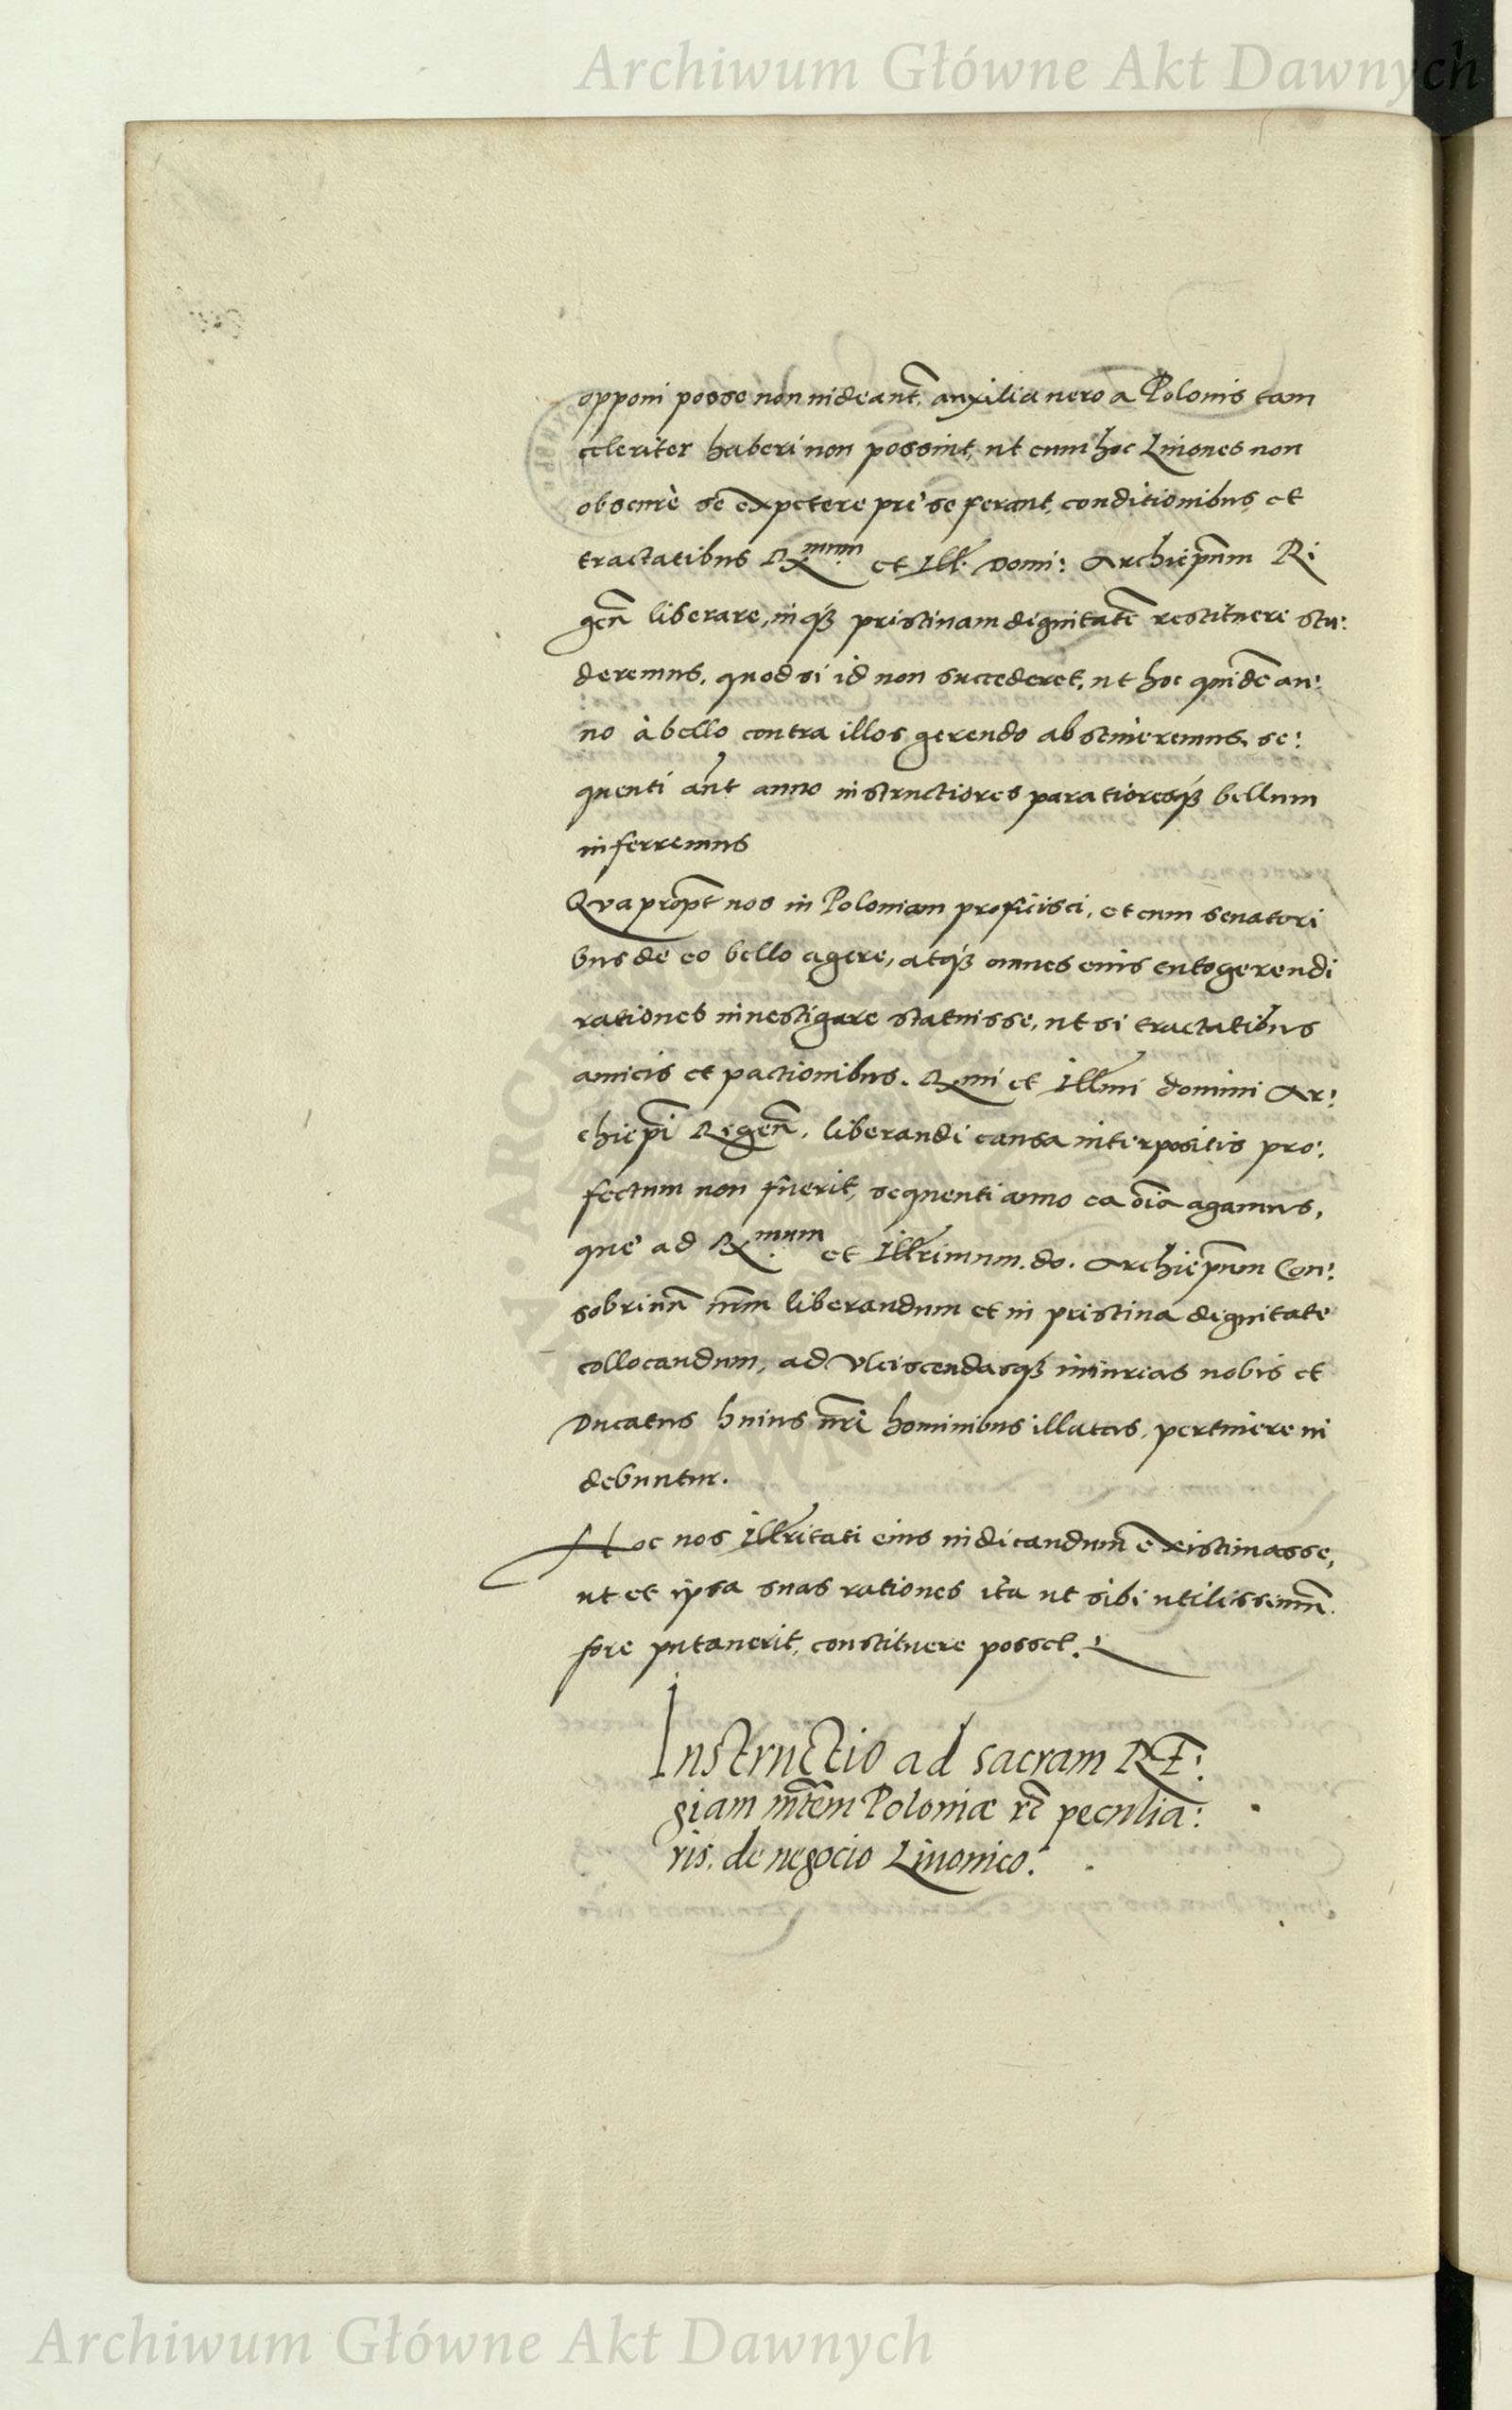 Archiwum Główne Akt Dawnych
opponi posse non uideant̃, auxilia uero a Polonis tam
celeriter haberi non possint, ut cum hoc Liuones non
obscurè se expetere pre se ferant, conditionibus et
tractatibus Rx.mum et Ill. Domi: Archiep̃um Ri
geñ liberare, inq3 pristinam dignitatẽ restituere stu:
deremus, quod si id non succederet, ut hoc quidẽ an:
no à bello contra illos gerendo abstineremus, se:
quenti aũt anno instructiores paratioresq3 bellum
inferremus
Qva prop̃t nos in Poloniam proficisci, et cum senatori
bus de eo bello agere, atq3 omnes eius cuto gerendi
rationes inuestigare statuisse, ut si tractatibus
amicis et pactionibus. Rxmi et Illmi domini Ar:
chiep̃i Rigeñ. liberandi causa interpositis pro:
fectum non fuerit, sequenti anno ea oĩa agamus,
que ad Rx.mum et Illrimum. do. Archiep̃um Con:
sobrinũ nr̃m liberandum et in pristina dignitate
collocandum, ad Vlciscendasq3 iniurias nobis et
Ducatus huius nr̃i hominibus illatas, pertinere ui
debuntur.
Hoc nos Illritati eius indicandum existimasse,
ut et ipsa suas rationes ita ut sibi utilissimũ
fore putauerit, constituere posset.
Instructio ad sacram RE:
giam mt̃em Poloniæ rc̃ peculia:
ris. de negocio Liuonico.
Archiwum Główne Akt Dawnych